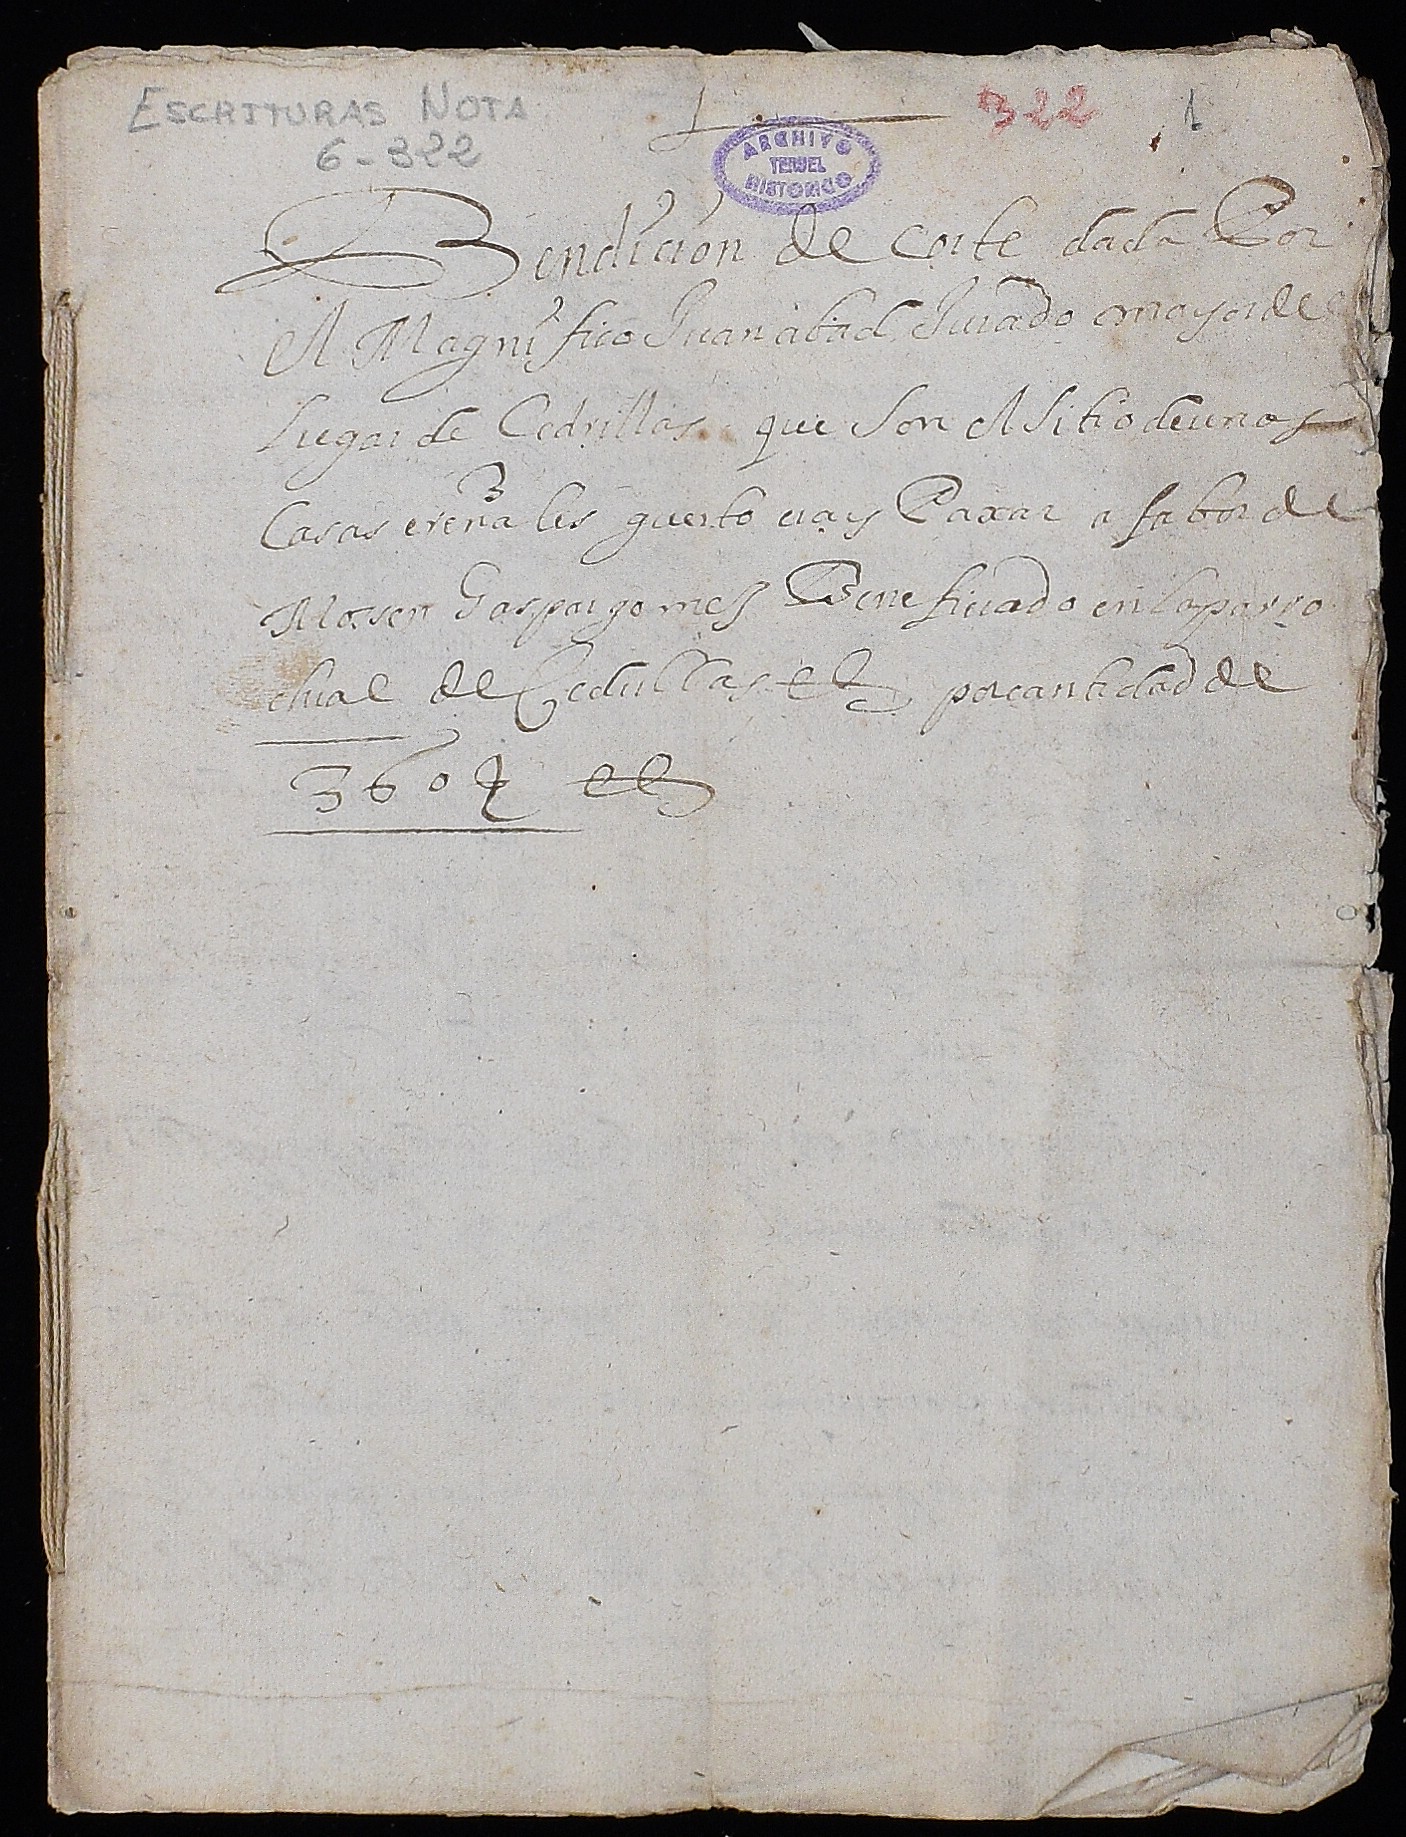 ESCRITURAS NOTA
6-322
322 1
ARCHIVO
TERUEL
HISTORICO
Bendición de corte dada Por
el Magnifico Juan abad Jurado mayor del
Lugar de Cedrillas que son el sitio de unas
Casas guerto era y Paxar a fabor de
Mosen Gaspar gomes Beneficiado en la parro
chial de Cedrillas por cantidad de
360